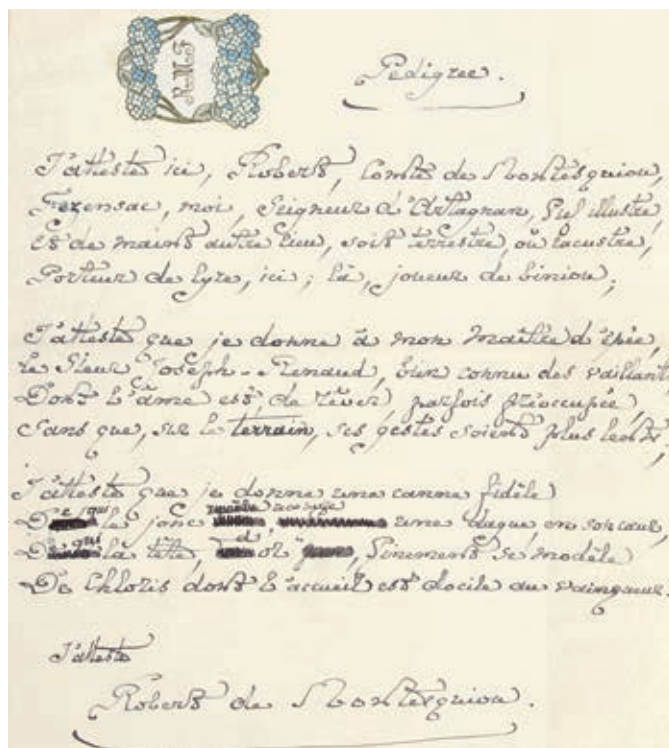 R.M.F
Pédigree.
J'atteste ici, Robert, Comte de Montesquiou,
Fezensac, moi, Seigneur d'Artagnan, fief illustre,
Et de maint autre lieu, soit terrestre, ou lacustre,
Porteur de lyre, ici; là, joueur de biniou;
J'atteste que je donne à mon maître d'épée,
Le Sieur Joseph-Renaud, bien connu des vaillants
Dont l'âme est de rêver parfois préoccupée,
Sans que, sur le terrain, ses gestes soient plus lents;
J'atteste que je donne une canne fidèle
De qui le jonc, une dague, en son cœur,
De qui la tête, d'or, finement se modèle
De Chloris dont l'accueil est docile au vainqueur.
J'atteste
Robert de Montesquiou.